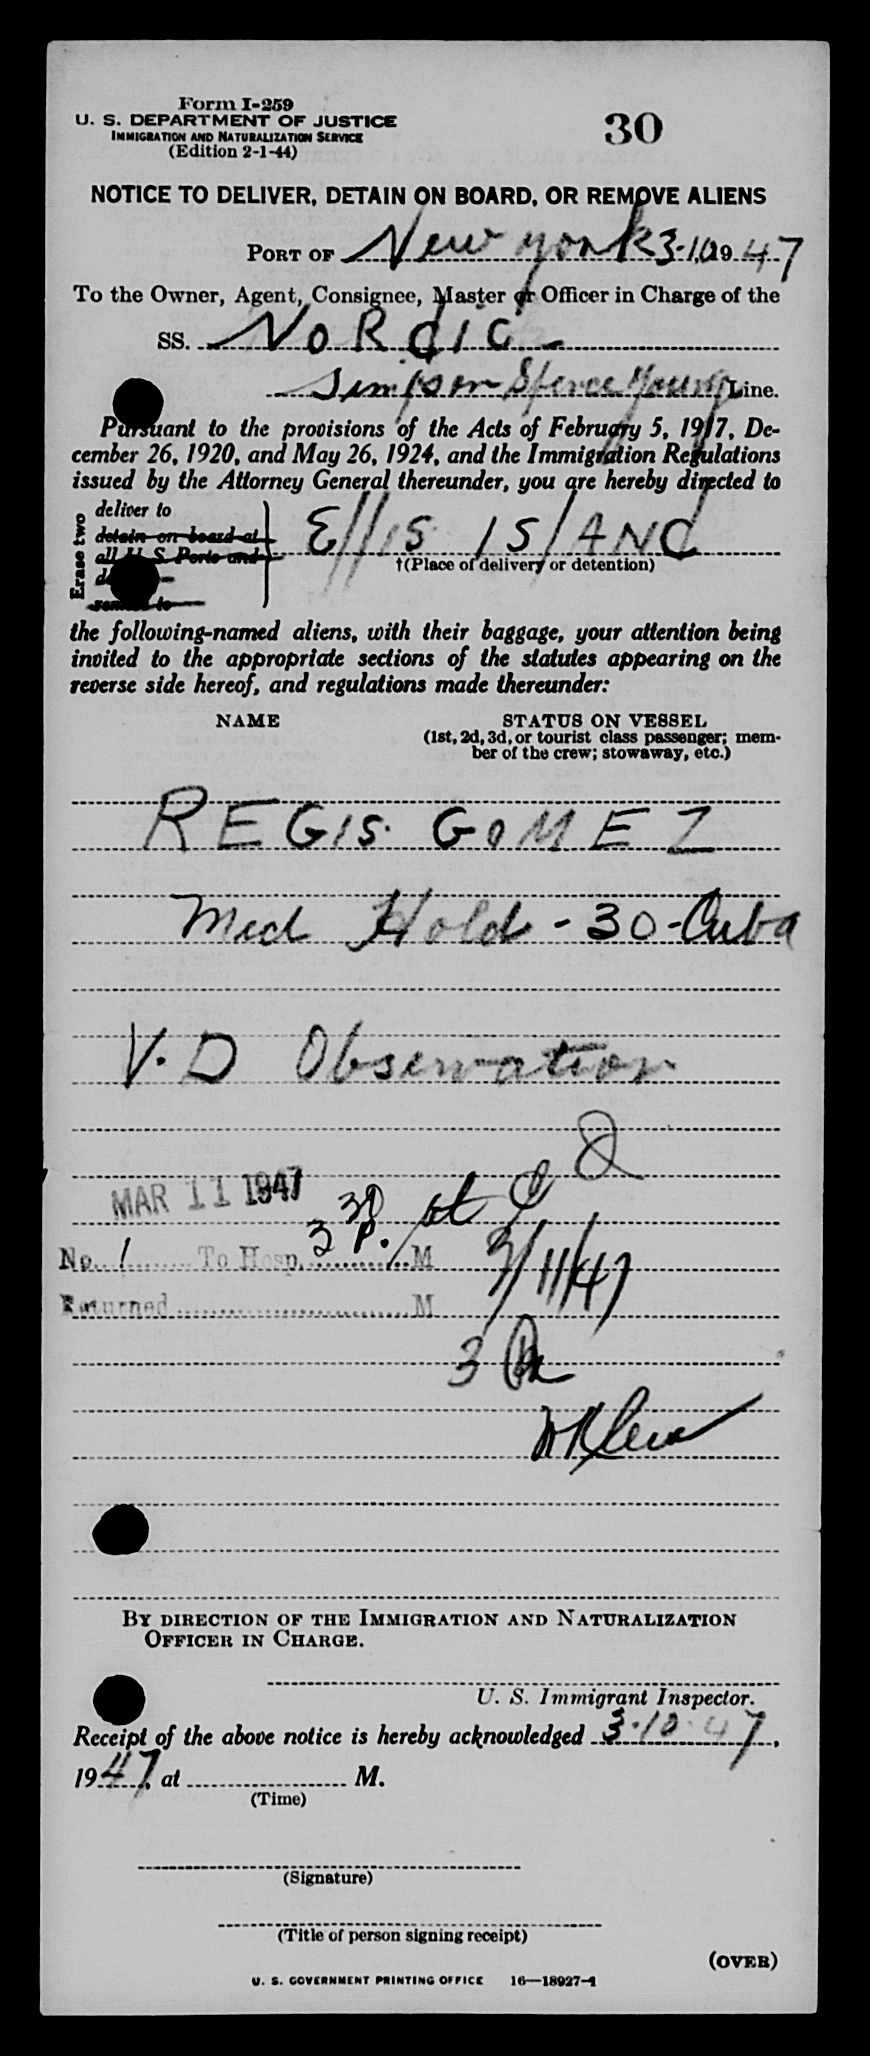 Form I-259
U. S. DEPARTMENT OF JUSTICE
IMMIGRATION AND NATURALIZATION SERVICE
(Edition 2-1-44)
30
NOTICE TO DELIVER, DETAIN ON BOARD, OR REMOVE ALIENS
PORT OF New York 3-10, 1947
To the Owner, Agent, Consignee, Master or Officer in Charge of the
SS. NORdic
Simpson Spence Young Line.
Pursuant to the provisions of the Acts of February 5, 1917, De-
cember 26, 1920, and May 26, 1924, and the Immigration Regulations
issued by the Attorney General thereunder, you are hereby directed to
Erase two
deliver to
detain on board at
all U. S. Ports and
remove to
Ellis Island
†(Place of delivery or detention)
the following-named aliens, with their baggage, your attention being
invited to the appropriate sections of the statutes appearing on the
reverse side hereof, and regulations made thereunder:
NAME
STATUS ON VESSEL
(1st, 2d, 3d, or tourist class passenger; mem-
ber of the crew; stowaway, etc.)
REGIS. GOMEZ
Med Hold - 30 - Cuba
V. D Observation
MAR 11 1947
No. 1 To Hosp. 3 30 P. M
Returned M
3/11/47
3
BY DIRECTION OF THE IMMIGRATION AND NATURALIZATION
OFFICER IN CHARGE.
U. S. Immigrant Inspector.
Receipt of the above notice is hereby acknowledged 3-10-47,
1947, at M.
(Time)
(Signature)
(Title of person signing receipt)
(OVER)
U. S. GOVERNMENT PRINTING OFFICE 16—18927-1